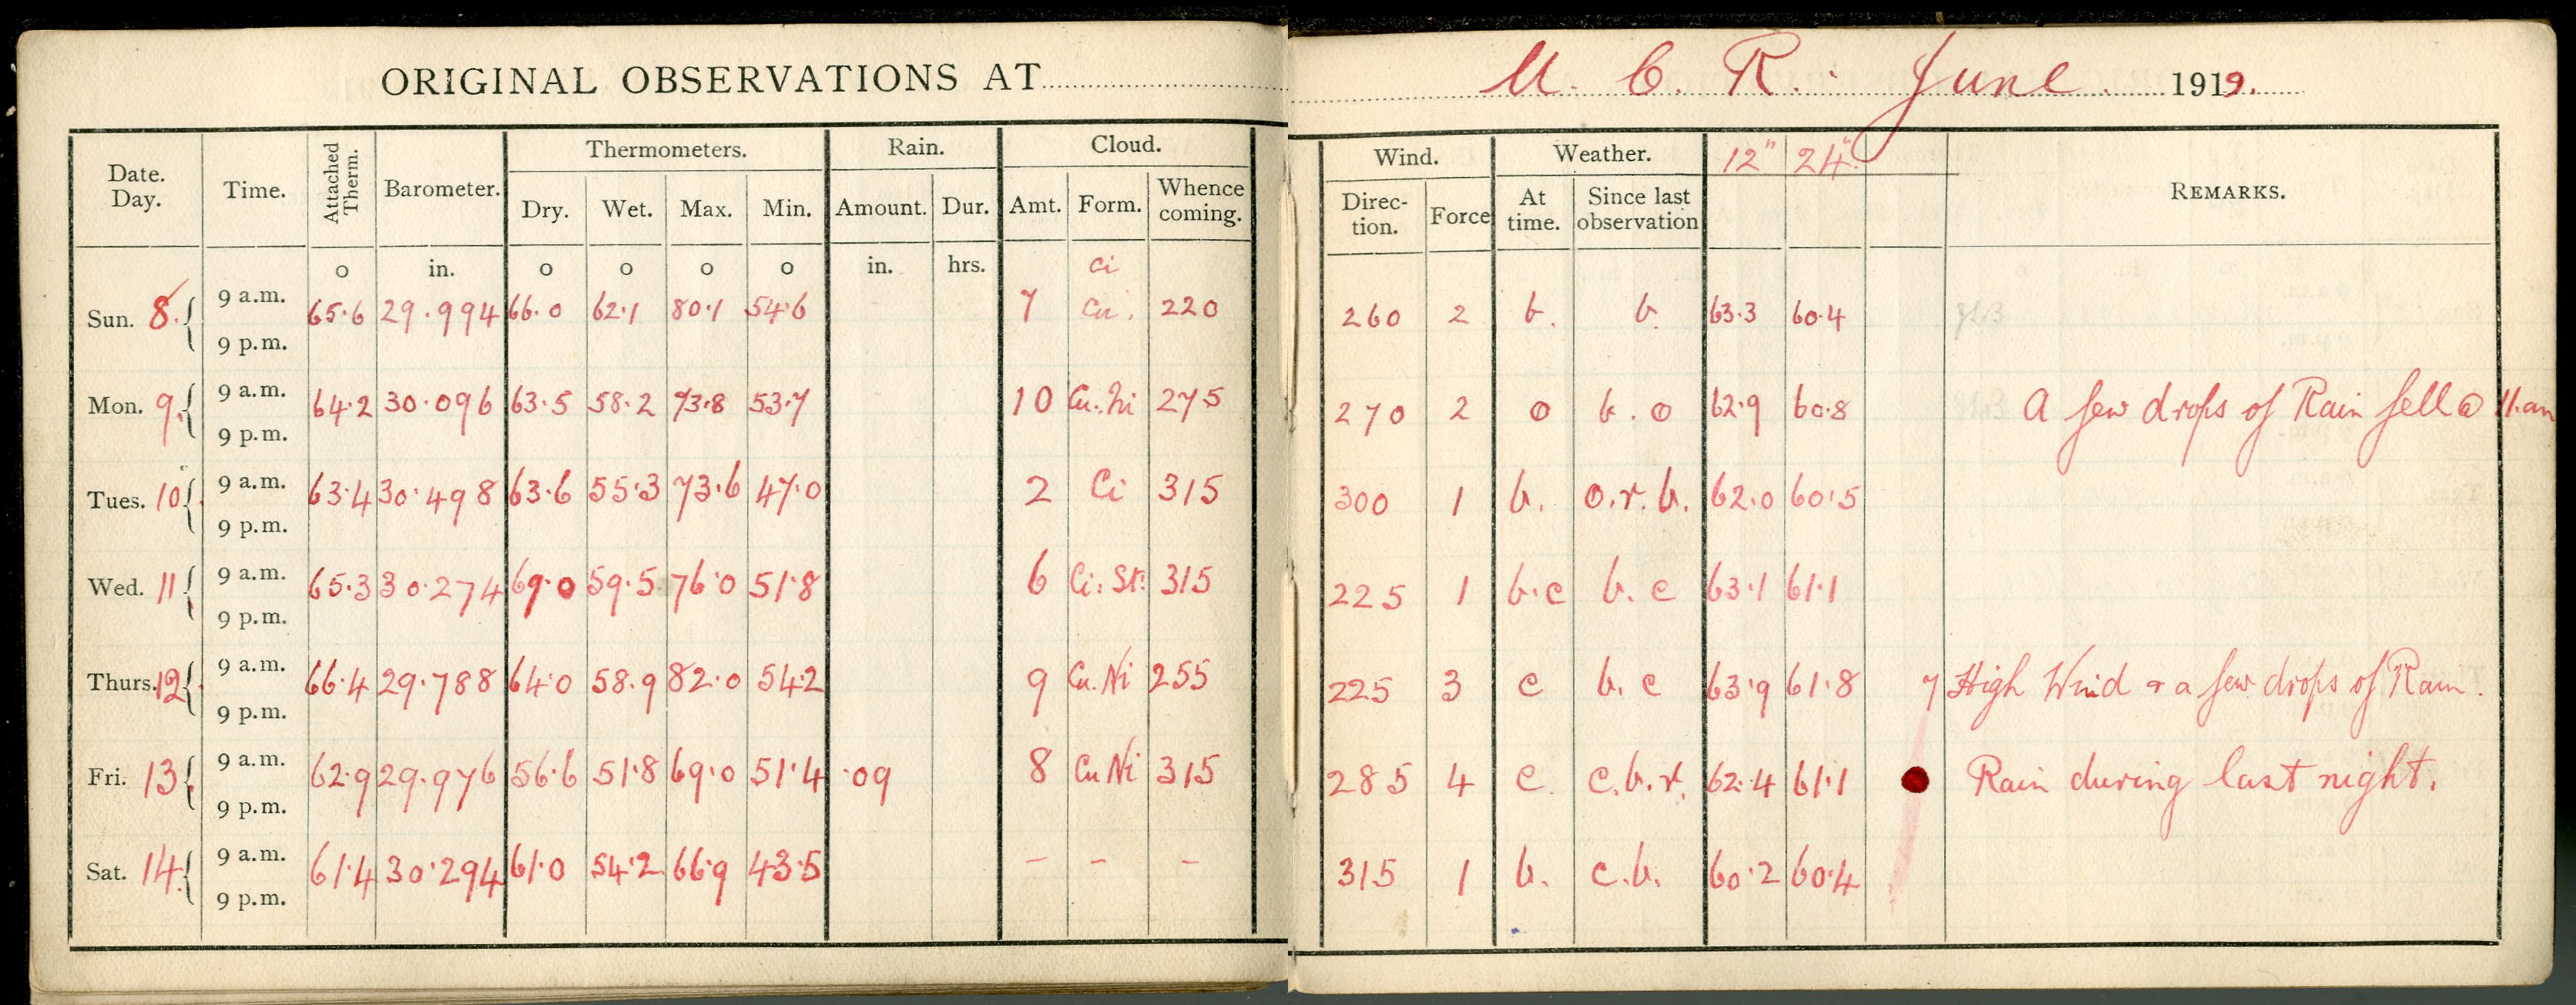 ORIGINAL OBSERVATIONS AT U. C. R. June 1919.
Date. Day. Time. Attached Therm. Barometer. Thermometers. Rain. Cloud. Wind. Weather. 12" 24" REMARKS.
Dry. Wet. Max. Min. Amount. Dur. Amt. Form. Whence coming. Direc- tion. Force At time. Since last observation
o in. o o o o in. hrs.
Sun. 8. 9 a.m. 65.6 29.994 66.0 62.1 80.1 54.6 7 Ci Cu. 220 260 2 b. b. 63.3 60.4
9 p.m.
Mon. 9. 9 a.m. 64.2 30.096 63.5 58.2 73.8 53.7 10 Cu.Ni 275 270 2 o b.o 62.9 60.8 A few drops of Rain fell @ 11.am
9 p.m.
Tues. 10. 9 a.m. 63.4 30.498 63.6 55.3 73.6 47.0 2 Ci 315 300 1 b. o.r.b. 62.0 60.5
9 p.m.
Wed. 11 9 a.m. 65.3 30.274 69.0 59.5 76.0 51.8 6 Ci.St. 315 225 1 b.c b.c 63.1 61.1
9 p.m.
Thurs. 12 9 a.m. 66.4 29.788 64.0 58.9 82.0 54.2 9 Cu.Ni 255 225 3 c b.c 63.9 61.8 7 High Wind & a few drops of Rain.
9 p.m.
Fri. 13 9 a.m. 62.9 29.976 56.6 51.8 69.0 51.4 .09 8 Cu Ni 315 285 4 c c.b.r. 62.4 61.1 Rain during last night.
9 p.m.
Sat. 14. 9 a.m. 61.4 30.294 61.0 54.2 66.9 43.5 – – – 315 1 b. c.b. 60.2 60.4
9 p.m.